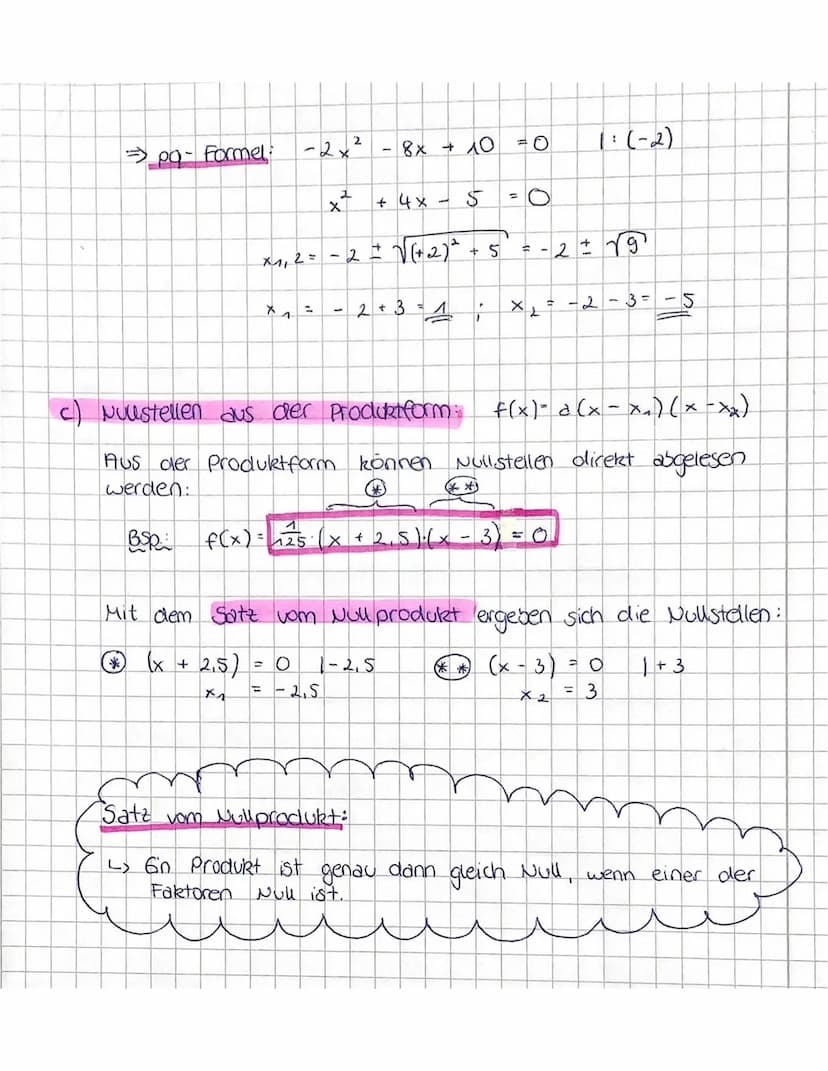 ⇒ pq-Formel: -2x² - 8x + 10 = 0 |:(-2)
x² + 4x - 5 = 0
x₁,₂ = -2 ± √((+2)² + 5) = -2 ± √9
x₁ = -2 + 3 = 1 ; x₂ = -2 - 3 = -5
c) Nullstellen aus der Produktform: f(x) = a(x - x₁)(x - x₂)
Aus der Produktform können Nullstellen direkt abgelesen
werden: (*) (**)
Bsp.: f(x) = 1/125 · (x + 2,5)·(x - 3) = 0
Mit dem Satz vom Nullprodukt ergeben sich die Nullstellen:
(*) (x + 2,5) = 0 |-2,5 (**) (x - 3) = 0 |+3
x₁ = -2,5 x₂ = 3
Satz vom Nullprodukt:
↳ Ein Produkt ist genau dann gleich Null, wenn einer der
Faktoren Null ist.